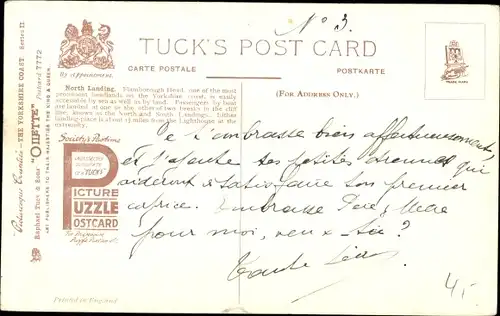 N° 3.
TUCK'S POST CARD
CARTE POSTALE
POSTKARTE
(FOR ADDRESS ONLY.)
By appointment.
TRADE MARK
"Picturesque Counties" - THE YORKSHIRE COAST. Series II.
Raphael Tuck & Sons' "OILETTE" Postcard 7772
ART PUBLISHERS TO THEIR MAJESTIES THE KING & QUEEN.
North Landing. Flamborough Head, one of the most
prominent headlands on the Yorkshire coast, is easily
accessible by sea as well as by land. Passengers by boat
are landed at one or the other of two breaks in the
cliff, known as the North and South Landings.
landing-place is about 1½ miles from the Lighthouse at the
extremity.
Society's Pastime
PICTURE
PUZZLE
POSTCARD
Je t'embrasse bien affectueusement,
et j'ajoute ses petites qui
aideront à satisfaire son premier
caprice. Embrasse Père, Mère
pour moi, veux tu?
Tante
4,-
Printed in England